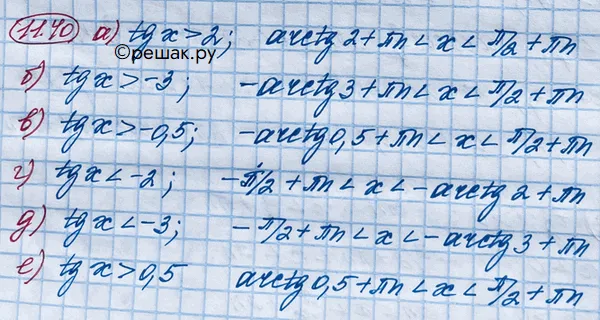 11.40 а) tg x > 2; arctg 2 + πn < x < π/2 + πn
©решак.ру
б) tg x > -3; -arctg 3 + πn < x < π/2 + πn
в) tg x > -0,5; -arctg 0,5 + πn < x < π/2 + πn
г) tg x < -2; -π/2 + πn < x < -arctg 2 + πn
д) tg x < -3; -π/2 + πn < x < -arctg 3 + πn
е) tg x > 0,5 arctg 0,5 + πn < x < π/2 + πn